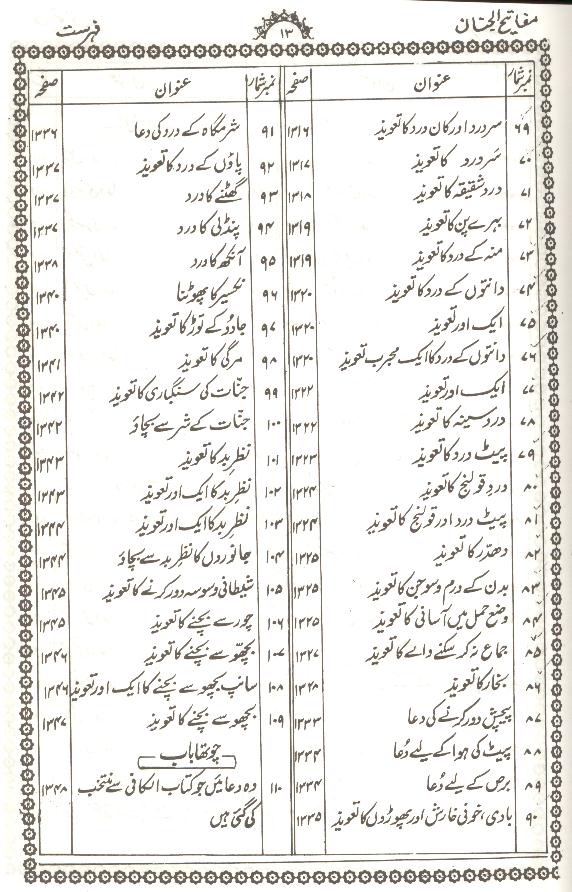 مفاتیح الجنان ۱۳ فہرست
نمبر شمار عنوان صفحہ
۶۹ سر درد اور کان درد کا تعویذ ۱۳۱۶
۷۰ سَر درد کا تعویذ ۱۳۱۷
۷۱ درد شقیقہ کا تعویذ ۱۳۱۸
۷۲ بہرے پن کا تعویذ ۱۳۱۹
۷۳ منہ کے درد کا تعویذ ۱۳۱۹
۷۴ دانتوں کے درد کا تعویذ ۱۳۲۰
۷۵ ایک اور تعویذ ۱۳۲۰
۷۶ دانتوں کے درد کا ایک مجرب تعویذ ۱۳۲۰
۷۷ ایک اور تعویذ ۱۳۲۲
۷۸ درد سینہ کا تعویذ ۱۳۲۲
۷۹ پیٹ درد کا تعویذ ۱۳۲۳
۸۰ دردِ قولنج کا تعویذ ۱۳۲۴
۸۱ پیٹ درد اور قولنج کا تعویذ ۱۳۲۴
۸۲ دھدّر کا تعویذ ۱۳۲۵
۸۳ بدن کے درم و سوجن کا تعویذ ۱۳۲۵
۸۴ وضع حمل میں آسانی کا تعویذ ۱۳۲۵
۸۵ جماع نہ کر سکنے والے کا تعویذ ۱۳۲۷
۸۶ بخار کا تعویذ ۱۳۲۸
۸۷ پیچپش دور کرنے کی دعا ۱۳۳۳
۸۸ پیٹ کی ہوا کے لیے دُعا ۱۳۳۴
۸۹ برص کے لیے دُعا ۱۳۳۴
۹۰ بادی، خونی خارش اور پھوڑوں کا تعویذ ۱۳۳۵
نمبر شمار عنوان صفحہ
۹۱ شرمگاہ کے درد کی دعا ۱۳۳۶
۹۲ پاؤں کے درد کا تعویذ ۱۳۳۷
۹۳ گھٹنے کا درد ۱۳۳۷
۹۴ پنڈلی کا درد ۱۳۳۷
۹۵ آنکھ کا درد ۱۳۳۸
۹۶ نکسیر کا پھوٹنا ۱۳۴۰
۹۷ جادُو کے توڑ کا تعویذ ۱۳۴۰
۹۸ مرگی کا تعویذ ۱۳۴۱
۹۹ جنّات کی سنگباری کا تعویذ ۱۳۴۲
۱۰۰ جنّات کے شر سے بچاؤ ۱۳۴۲
۱۰۱ نظرِ بد کا تعویذ ۱۳۴۳
۱۰۲ نظرِ بد کا ایک اور تعویذ ۱۳۴۳
۱۰۳ نظرِ بد کا ایک اور تعویذ ۱۳۴۴
۱۰۴ جانوروں کا نظرِ بد سے بچاؤ ۱۳۴۴
۱۰۵ شیطانی وسوسہ دور کرنے کا تعویذ ۱۳۴۵
۱۰۶ چور سے بچنے کا تعویذ ۱۳۴۵
۱۰۷ بچھّو سے بچنے کا تعویذ ۱۳۴۶
۱۰۸ سانپ بچھو سے بچنے کا ایک اور تعویذ ۱۳۴۶
۱۰۹ بچھو سے بچنے کا تعویذ ۱۳۴۷
چوتھا باب
۱۱۰ وہ دعائیں جو کتاب الکافی سے منتخب ۱۳۴۸
کی گئی ہیں